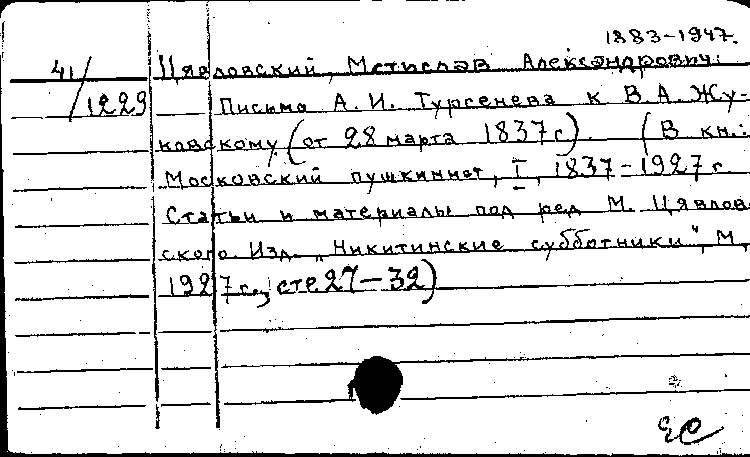 1883-1947.
41/ Цявловский, Мстислав Александрович.
/1229 Письма А. И. Тургенева к В. А. Жу-
ковскому. (от 28 марта 1837 г.) (В кн.:
Московский пушкинист, I, 1837-1927 г.
Статьи и материалы под ред М. Цявлов
ского. Изд. "Никитинские субботники", М,
1927 г., стр 27-32)